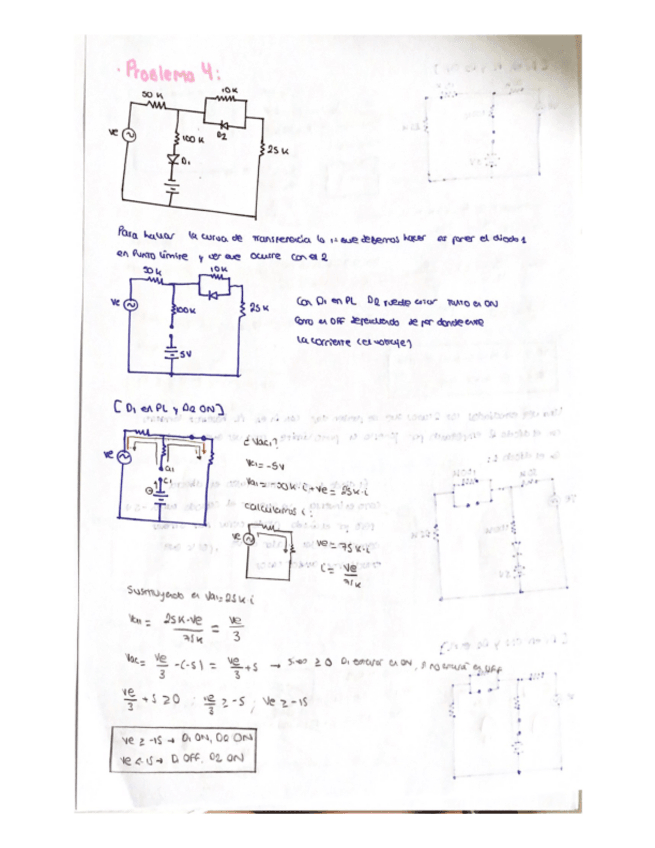 · Problema 4:
50 K
10K
Ve
100 K
D2
25 K
D1
Para hallar la curva de transferencia lo 1º que debemos hacer es poner el diodo 1
en Punto Límite y ver que ocurre con el 2
50 k
10k
Ve
100k
25 K
5V
Con D1 en PL D2 puede estar tanto en ON
como en OFF dependiendo de por donde entre
la corriente (el voltaje)
[ D1 en PL y D2 ON ]
Ve
a1
c1
¿ Vac1?
Vc1= -5V
Va1= -50K·i+Ve= 25K·i
calculamos i:
Ve
Ve=75K·i
i= Ve/75K
Sustituyendo en Va1=25K·i
Va1= 25K·Ve/75K = Ve/3
Vac= Ve/3 -(-5) = Ve/3 +5 → si es ≥ 0 D1 estará en ON, si no estará en OFF
Ve/3 +5 ≥0 ; Ve/3 ≥ -5 ; Ve ≥ -15
Ve ≥ -15 → D1 ON, D2 ON
Ve < -15 → D1 OFF, D2 ON